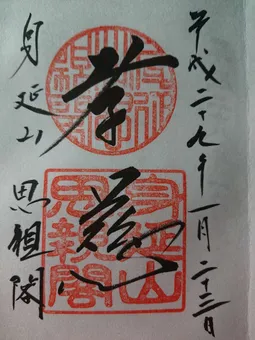 平成二十九年一月二十三日
孝慈
身延山
思親閣
身延山
思親閣